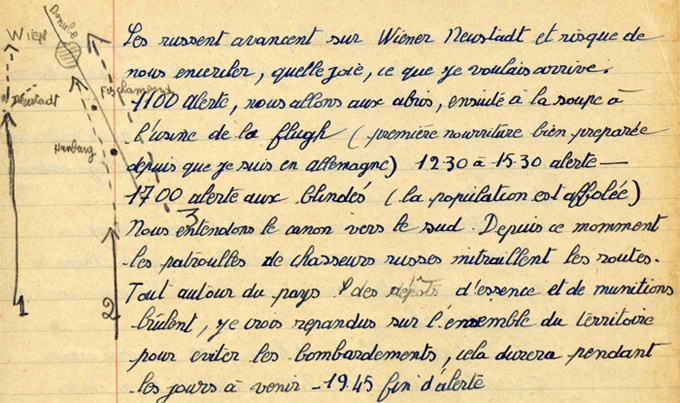 Danube
WIEN
Neustadt
Fischamend
Hainburg
1
2
3
Les russent avancent sur Wiener Neustadt et risque de
nous encercler, quelle joie, ce que je voulais arrive.
1100 alerte, nous allons aux abris, ensuite à la soupe à
l'usine de la flugh (première nourriture bien preparée
depuis que je suis en allemagne) 12.30 à 15.30 alerte —
1700 alerte aux blindés (la population est affolée)
Nous entendons le canon vers le sud. Depuis ce momment
les patrouilles de chasseurs russes mitraillent les routes.
Tout autour du pays des dépôts d'essence et de munitions
brûlent, je crois repandus sur l'ensemble du térritoire
pour eviter les bombardements, cela durera pendant
les jours à venir - 19.45 fin d'alerte